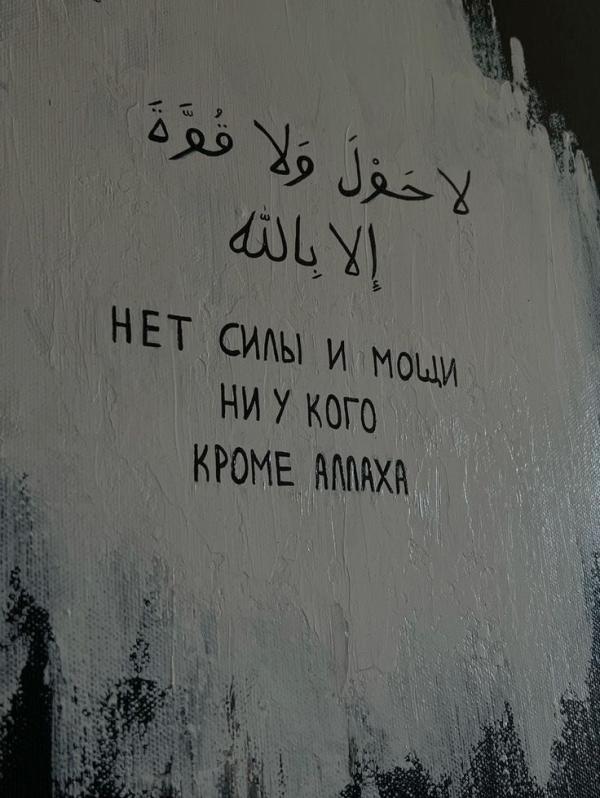 لا حَوْلَ وَلا قُوَّةَ
إِلا بِاللّٰه
НЕТ СИЛЫ И МОЩИ
НИ У КОГО
КРОМЕ АЛЛАХА